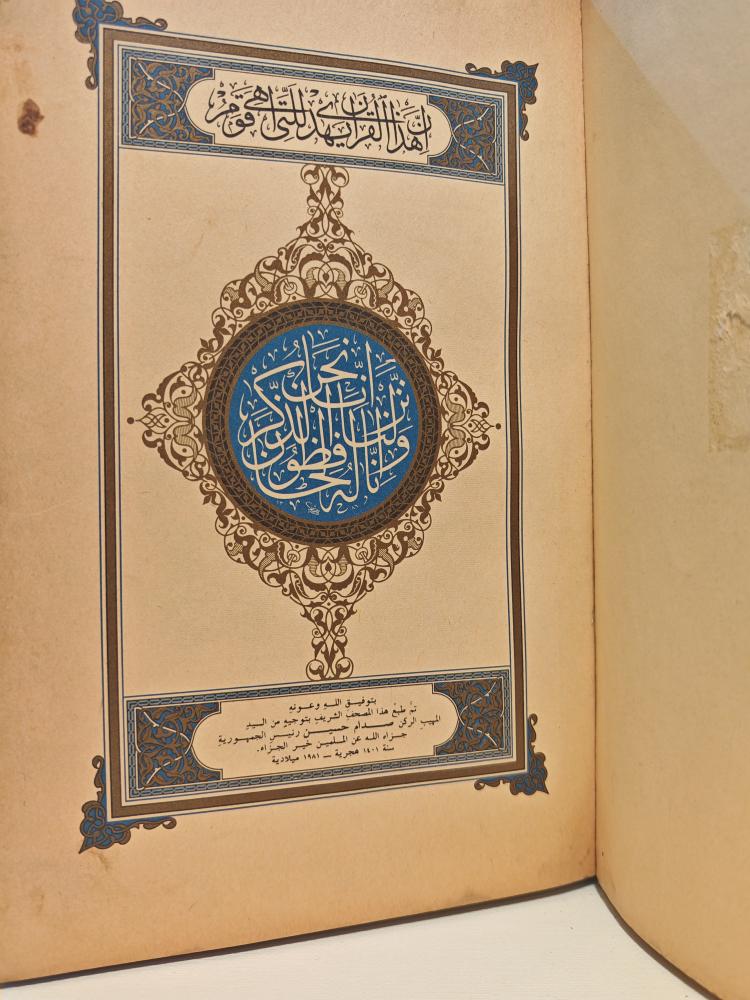 إِنَّ هَٰذَا الْقُرْآنَ يَهْدِي لِلَّتِي هِيَ أَقْوَمُ
إِنَّا نَحْنُ نَزَّلْنَا الذِّكْرَ وَإِنَّا لَهُ لَحَافِظُونَ
بتوفيق اللهِ وعونهِ
تمَّ طبعُ هذا المصحفِ الشريفِ بتوجيهٍ من السيدِ
المهيبِ الركن صدام حسين رئيسِ الجمهوريةِ
جزاهُ الله عن المسلمين خير الجزاء.
سنة ١٤٠١ هجرية – ١٩٨١ ميلادية